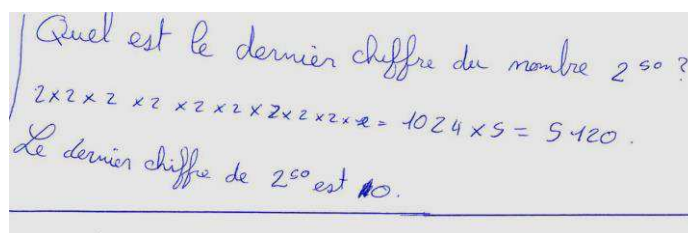 Quel est le dernier chiffre du nombre 2⁵⁰ ?
2×2×2×2×2×2×2×2×2×2 = 1024×5 = 5120.
Le dernier chiffre de 2⁵⁰ est 0.